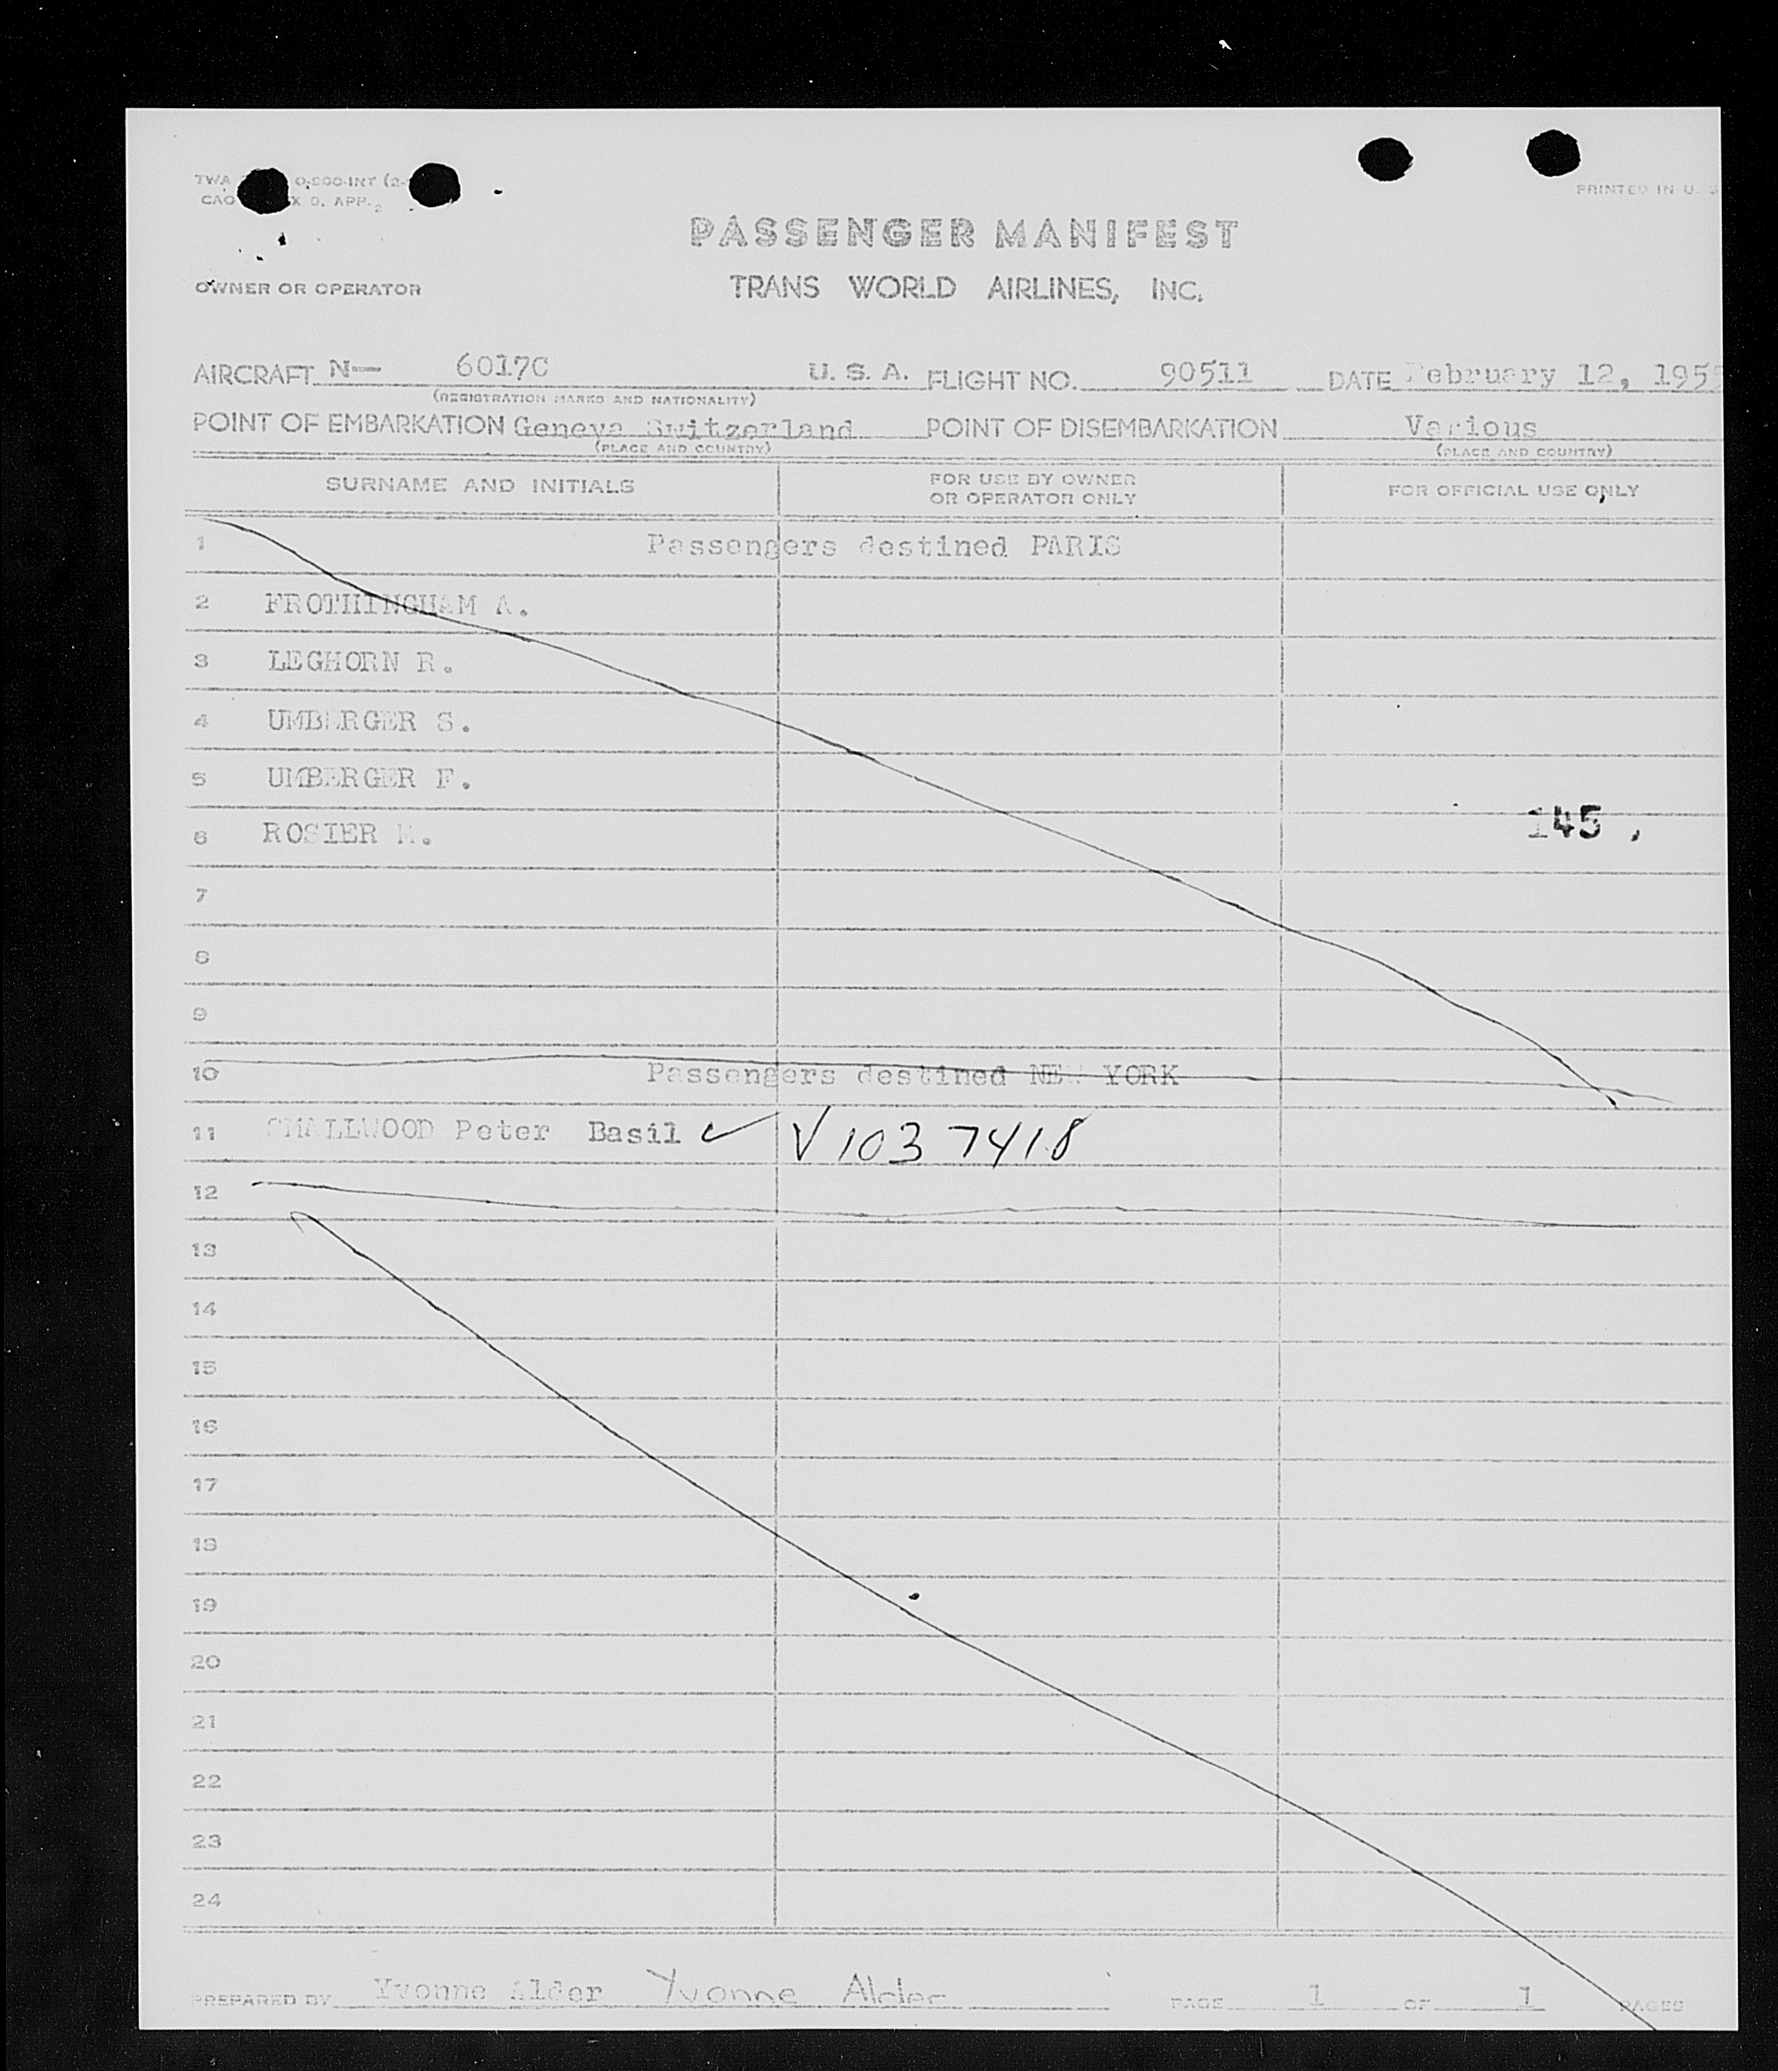 TWA 0,000-INT (2-
CAO X 9, APP. 2
PRINTED IN U. S
PASSENGER MANIFEST
OWNER OR OPERATOR TRANS WORLD AIRLINES, INC.
AIRCRAFT N— 6017C U. S. A. FLIGHT NO. 90511 DATE February 12, 1955
(REGISTRATION MARKS AND NATIONALITY)
POINT OF EMBARKATION Geneva Switzerland POINT OF DISEMBARKATION Various
(PLACE AND COUNTRY) (PLACE AND COUNTRY)
SURNAME AND INITIALS FOR USE BY OWNER OR OPERATOR ONLY FOR OFFICIAL USE ONLY
1 Passengers destined PARIS
2 FROTHINGHAM A.
3 LEGHORN R.
4 UMBERGER S.
5 UMBERGER F.
6 ROSIER M. 145
7
8
9
10 Passengers destined NEW YORK
11 SMALLWOOD Peter Basil ✓ V1037418
12
13
14
15
16
17
18
19
20
21
22
23
24
PREPARED BY Yvonne Alder Yvonne Alder PAGE 1 OF 1 PAGES